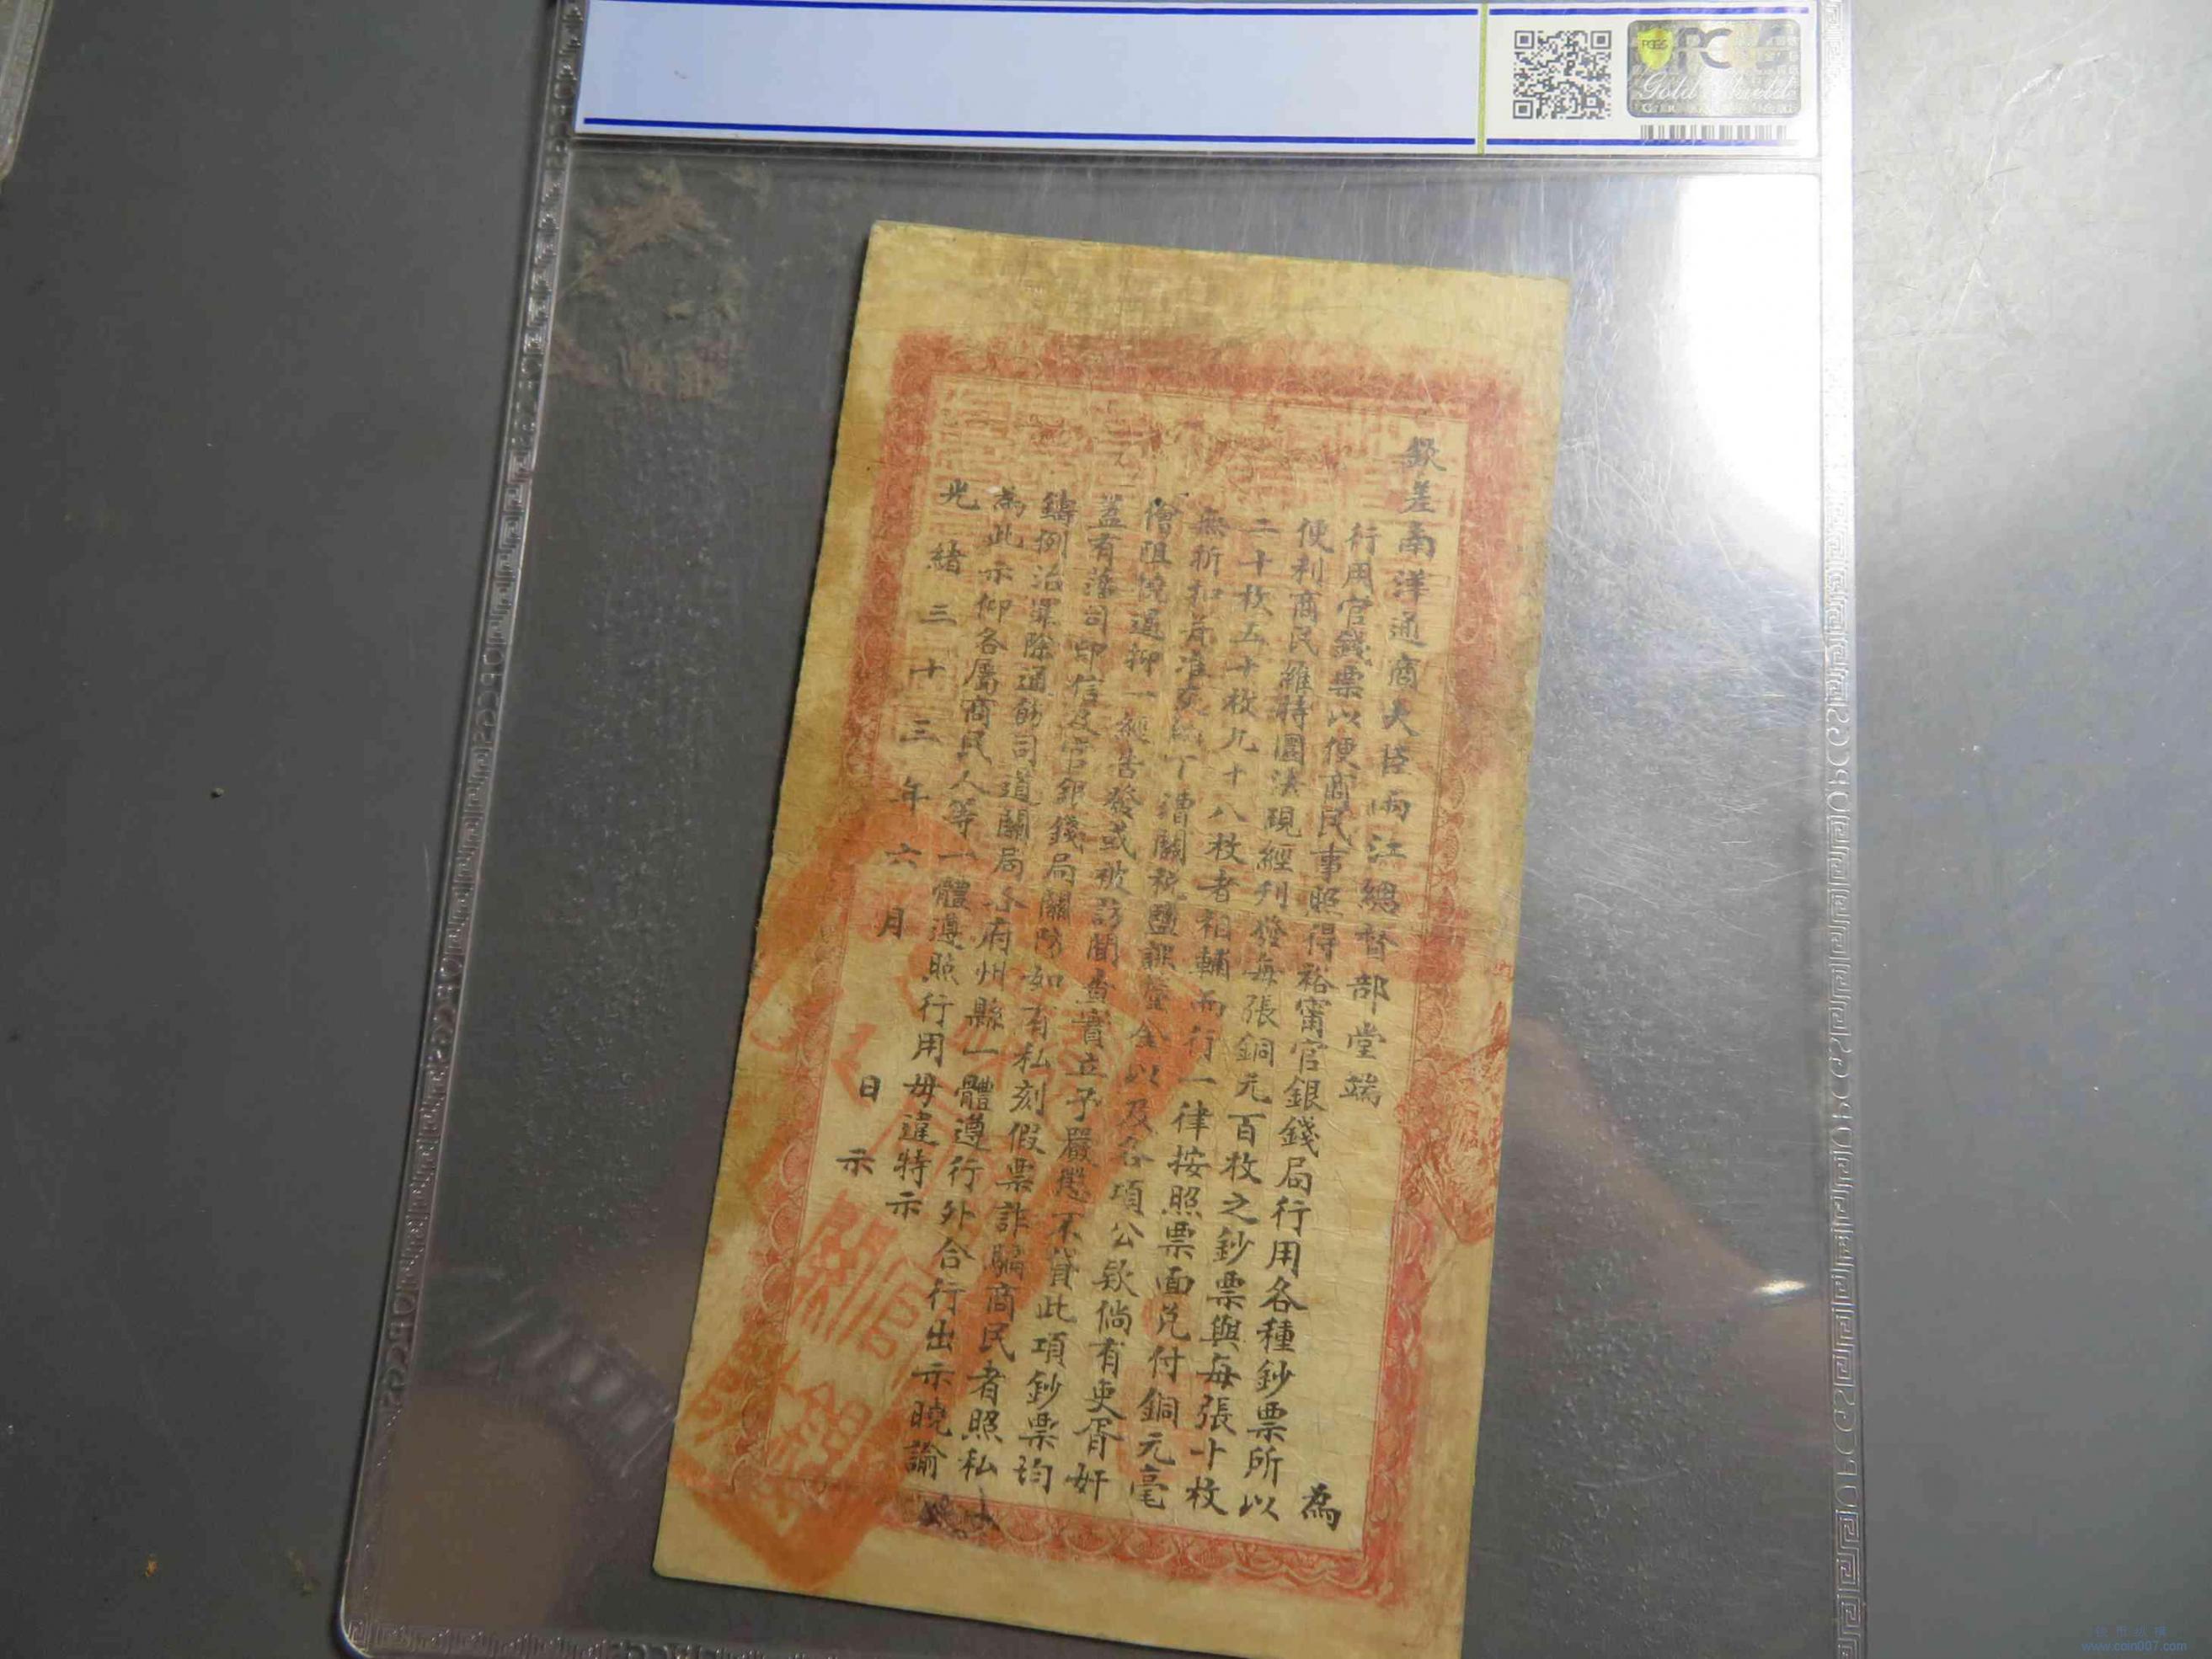 欽差南洋通商大臣兩江總督部堂端 為
行用官錢票以便商民事照得裕甯官銀錢局行用各種鈔票所以
便利商民維持圜法現經刊發每張銅元百枚之鈔票與每張十枚
二十枚五十枚九十八枚者相輔而行一律按照票面兌付銅元毫
無折扣并准完納丁漕關稅鹽課釐金以及各項公欵倘有吏胥奸
儈阻撓逼抑一經告發或被訪聞查實立予嚴懲不貸此項鈔票均
蓋有藩司印信及官銀錢局關防如有私刻假票詐騙商民者照私
鑄例治罪除通飭司道關局各府州縣一體遵行外合行出示曉諭
為此示仰各屬商民人等一體遵照行用毋違特示
光緒三十三年六月 日示
PCGS
Gold Shield
www.coin007.com